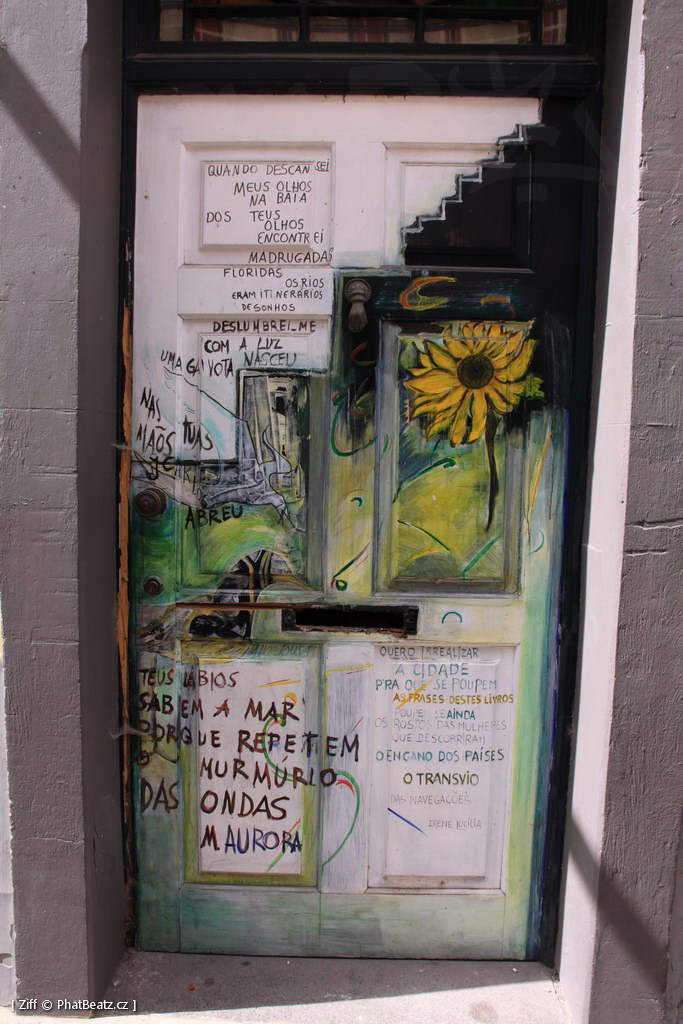 QUANDO DESCANSEI
MEUS OLHOS
NA BAIA
DOS TEUS
OLHOS
ENCONTREI
MADRUGADAS
FLORIDAS
OS RIOS
ERAM ITINERÁRIOS
DE SONHOS
DESLUMBREI_ME
COM A LUZ
UMA GAIVOTA NASCEU
NAS
MÃOS TUAS
ABREU
TEUS LÁBIOS
SABEM A MAR
PORQUE REPETEM
O MURMÚRIO
DAS ONDAS
M AURORA
QUERO IRREALIZAR
A CIDADE
P'RA QUE SE POUPEM
AS FRASES DESTES LIVROS
AINDA
OS ROSTOS DAS MULHERES
QUE DESCOBRIRAM
O ENGANO DOS PAÍSES
O TRANSVIO
DAS NAVEGAÇÕES
IRENE LUCÍLIA
[ Ziff © PhatBeatz.cz ]